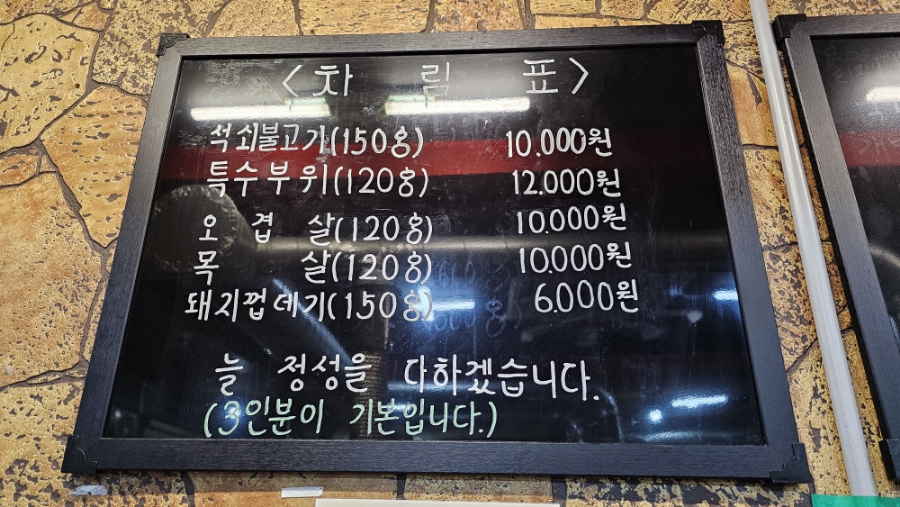 <차 림 표>
석쇠불고기(150g) 10.000원
특수부위(120g) 12.000원
오 겹 살(120g) 10.000원
목 살(120g) 10.000원
돼지껍데기(150g) 6.000원
늘 정성을 다하겠습니다.
(3인분이 기본입니다.)